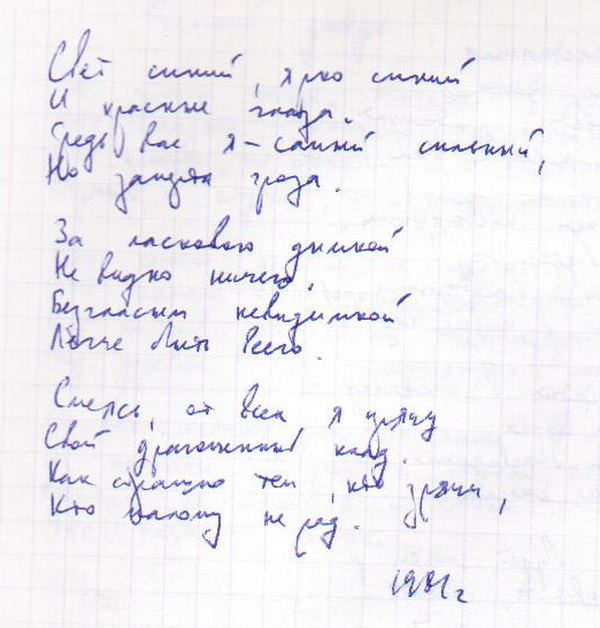 Свет синий, ярко синий
И красные глаза.
Средь вас я – самый сильный,
Но заперта гроза.
За ласковою дымкой
Не видно ничего.
Безгласым невидимкой
Легче быть всего.
Смеясь, от всех я прячу
Свой драгоценный клад.
Как страшно тем, кто зрячи,
Кто малому не рад.
1981 г